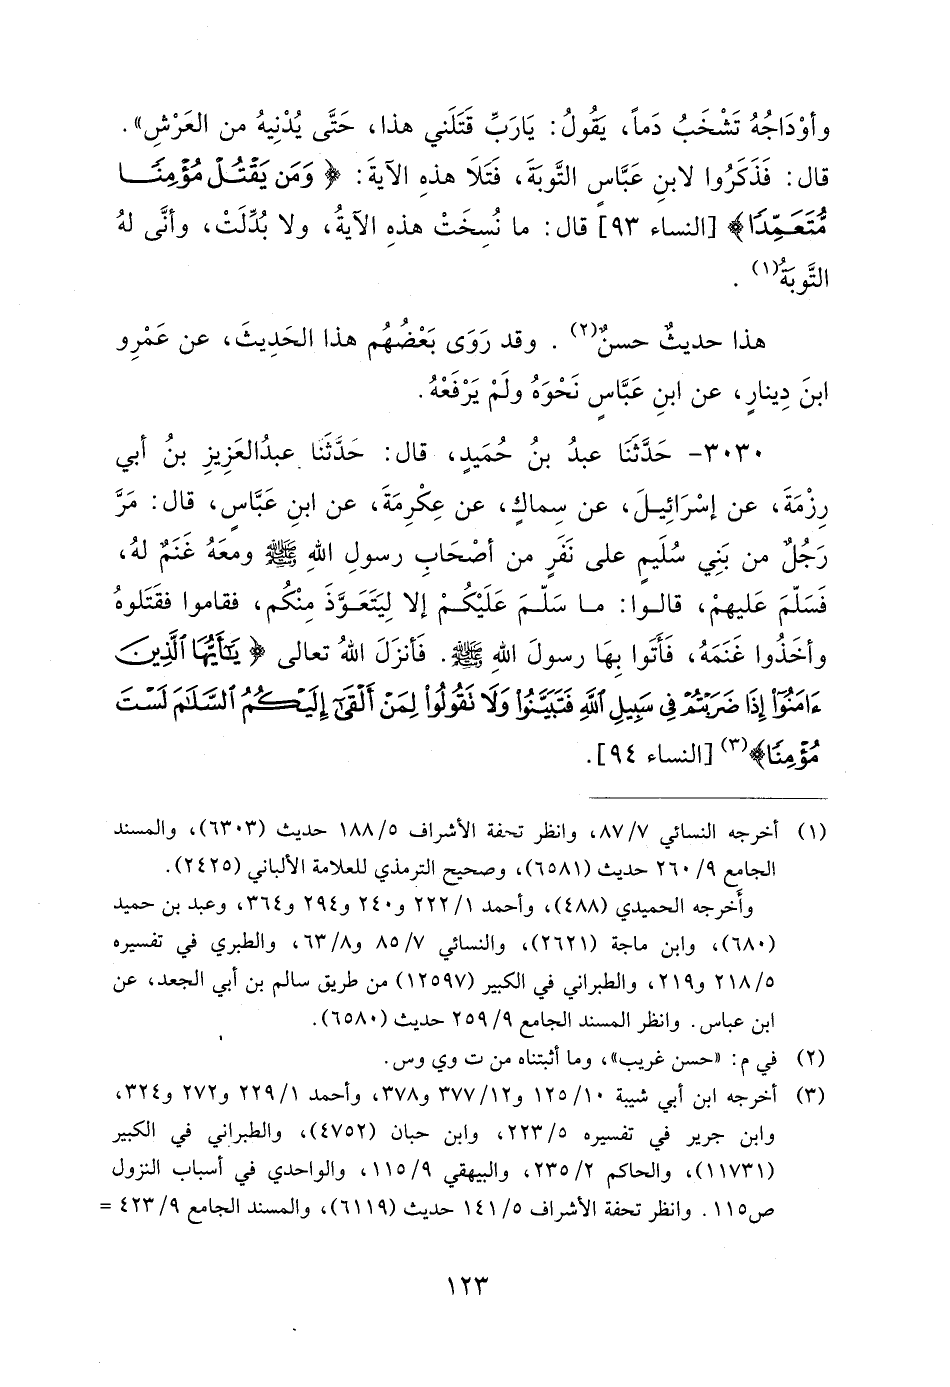 وأوْدَاجُهُ تَشْخَبُ دَماً، يَقُولُ: يَارَبِّ قَتَلَني هذا، حَتَّى يُدْنِيهُ من العَرْشِ».
قال: فَذَكَرُوا لابنِ عَبَّاسٍ التَّوبَةَ، فَتَلَا هذهِ الآيةَ: ﴿ وَمَن يَقْتُلْ مُؤْمِنًا
مُّتَعَمِّدًا﴾ [النساء ٩٣] قال: ما نُسِخَتْ هذهِ الآيةُ، ولا بُدِّلَتْ، وأنَّى لهُ
التَّوبَةُ(١) .
هذا حديثٌ حسنٌ(٢) . وقد رَوَى بَعْضُهُم هذا الحَدِيثَ، عن عَمْرِو
ابنَ دِينارٍ، عن ابنِ عَبَّاسٍ نَحْوَهُ ولَمْ يَرْفَعْهُ.
٣٠٣٠- حَدَّثَنَا عبدُ بنُ حُمَيدٍ، قال: حَدَّثَنَا عبدُالعَزِيزِ بنُ أبي
رِزْمَةَ، عن إسْرَائِيلَ، عن سِماكٍ، عن عِكْرِمَةَ، عن ابنِ عَبَّاسٍ، قال: مَرَّ
رَجُلٌ من بَنِي سُلَيمٍ على نَفَرٍ من أصْحَابِ رسولِ اللهِ ﷺ ومعَهُ غَنَمٌ لهُ،
فَسَلّمَ عَليهِمْ، قالوا: ما سَلّمَ عَلَيْكُمْ إلا لِيَتَعَوَّذَ مِنْكُم، فقاموا فقَتَلوهُ
وأخَذُوا غَنَمَهُ، فَأَتَوا بِهَا رسولَ اللهِ ﷺ. فَأنزَلَ اللهُ تعالى ﴿ يَٰٓأَيُّهَا ٱلَّذِينَ
ءَامَنُوٓا۟ إِذَا ضَرَبْتُمْ فِى سَبِيلِ ٱللَّهِ فَتَبَيَّنُوا۟ وَلَا تَقُولُوا۟ لِمَنْ أَلْقَىٰٓ إِلَيْكُمُ ٱلسَّلَٰمَ لَسْتَ
مُؤْمِنًا﴾(٣) [النساء ٩٤].
(١) أخرجه النسائي ٧/ ٨٧، وانظر تحفة الأشراف ٥/ ١٨٨ حديث (٦٣٠٣)، والمسند
الجامع ٩/ ٢٦٠ حديث (٦٥٨١)، وصحيح الترمذي للعلامة الألباني (٢٤٢٥).
وأخرجه الحميدي (٤٨٨)، وأحمد ١/ ٢٢٢ و٢٤٠ و٢٩٤ و٣٦٤، وعبد بن حميد
(٦٨٠)، وابن ماجة (٢٦٢١)، والنسائي ٧/ ٨٥ و٨/ ٦٣، والطبري في تفسيره
٥/ ٢١٨ و٢١٩، والطبراني في الكبير (١٢٥٩٧) من طريق سالم بن أبي الجعد، عن
ابن عباس. وانظر المسند الجامع ٩/ ٢٥٩ حديث (٦٥٨٠).
(٢) في م: «حسن غريب»، وما أثبتناه من ت وي وس.
(٣) أخرجه ابن أبي شيبة ١٠/ ١٢٥ و١٢/ ٣٧٧ و٣٧٨، وأحمد ١/ ٢٢٩ و٢٧٢ و٣٢٤،
وابن جرير في تفسيره ٥/ ٢٢٣، وابن حبان (٤٧٥٢)، والطبراني في الكبير
(١١٧٣١)، والحاكم ٢/ ٢٣٥، والبيهقي ٩/ ١١٥، والواحدي في أسباب النزول
ص١١٥. وانظر تحفة الأشراف ٥/ ١٤١ حديث (٦١١٩)، والمسند الجامع ٩/ ٤٢٣ =
١٢٣